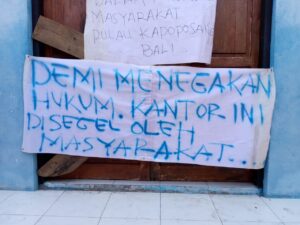 MASYARAKAT
PULAU KAPOPOSANG
BALI
DEMI MENEGAKAN
HUKUM. KANTOR INI
DISEGEL OLEH
MASYARAKAT..